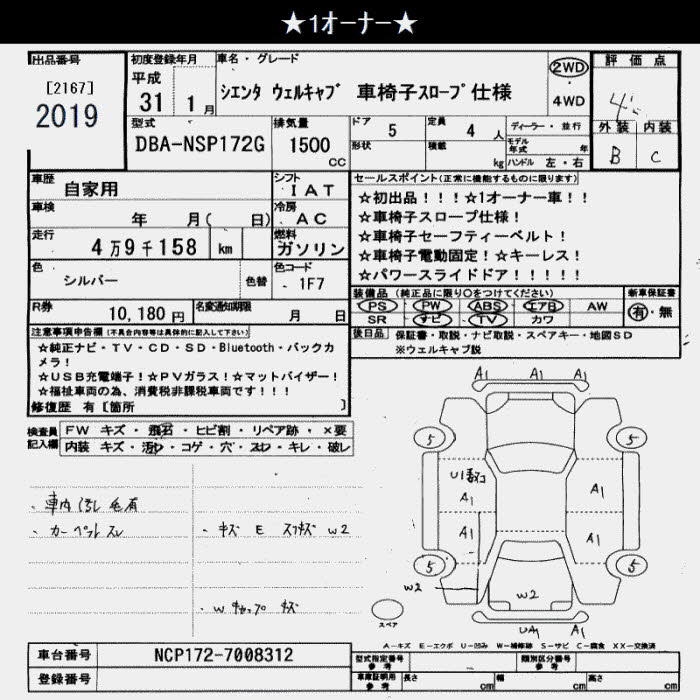 ★1オーナー★
出品番号
[2167]
2019
初度登録年月
平成
31 年 1 月
車名・グレード
シエンタ ウェルキャブ 車椅子スロープ仕様
2WD
4WD
評価点
外装 内装
B C
型式
DBA-NSP172G
排気量
1500
cc
ドア 5
定員 4 人
形状
積載 kg
ディーラー・並行
モデル年式 年
ハンドル 左・右
車歴 自家用
シフト IAT
車検 年 月( 日)
冷房 AC
走行 4万9千158 km
燃料 ガソリン
色 シルバー 色替
色コード - 1F7
R券 10,180 円
名変通知期限 月 日
セールスポイント(正常に機能するものに限ります)
☆初出品!!!☆1オーナー車!!
☆車椅子スロープ仕様!
☆車椅子セーフティーベルト!
☆車椅子電動固定!☆キーレス!
☆パワースライドドア!!!!!
装備品(純正品に限り○をつけてください)
PS PW ABS エアB AW
SR ナビ TV カワ
新車保証書
有・無
後日品 保証書・取説・ナビ取説・スペアキー・地図SD
※ウェルキャブ説
注意事項申告欄(不具合内容等は具体的に記入して下さい)
☆純正ナビ・TV・CD・SD・Bluetooth・バックカ
メラ!
☆USB充電端子!☆PVガラス!☆マットバイザー!
☆福祉車両の為、消費税非課税車両です!!!
修復歴 有〔箇所 〕
検査員記入欄
FW キズ・飛石・ヒビ割・リペア跡・×要
内装 キズ・汚れ・コゲ・穴・スレ・キレ・破レ
A1 A1 A1
5 5
A1 A1
A1 A1
5 5
W2 W2
A1
スペア
・カーペットスレ
・キズ E W2
A-キズ E-エクボ U-凹み W-補修跡 S-サビ C-腐食 XX-交換済
車台番号 NCP172-7008312
登録番号
型式指定番号 参考
類別区分番号 参考
車庫証明用 参考
長さ cm 幅 cm 高さ cm